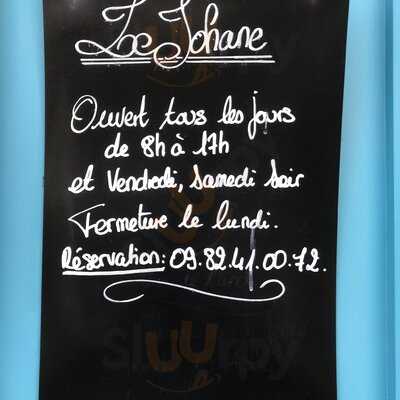 Le Johane
Ouvert tous les jours
de 8h à 17h
et Vendredi, Samedi Soir
Fermeture le lundi.
Réservation: 09.82.41.00.72.
Sluurpy